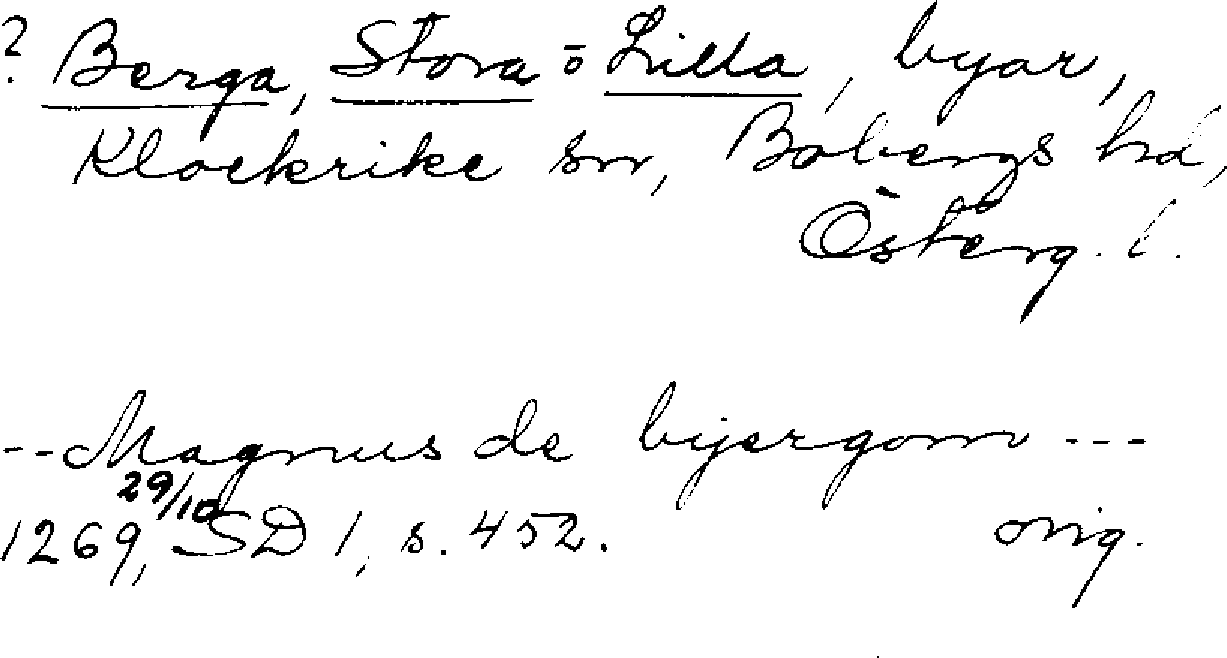 ? Berga, Stora o Lilla, byar,
Klockrike sn, Bobergs hd,
Österg. l.
-- Magnus de bijergom ---
29/10
1269, SD 1, s. 452. orig.